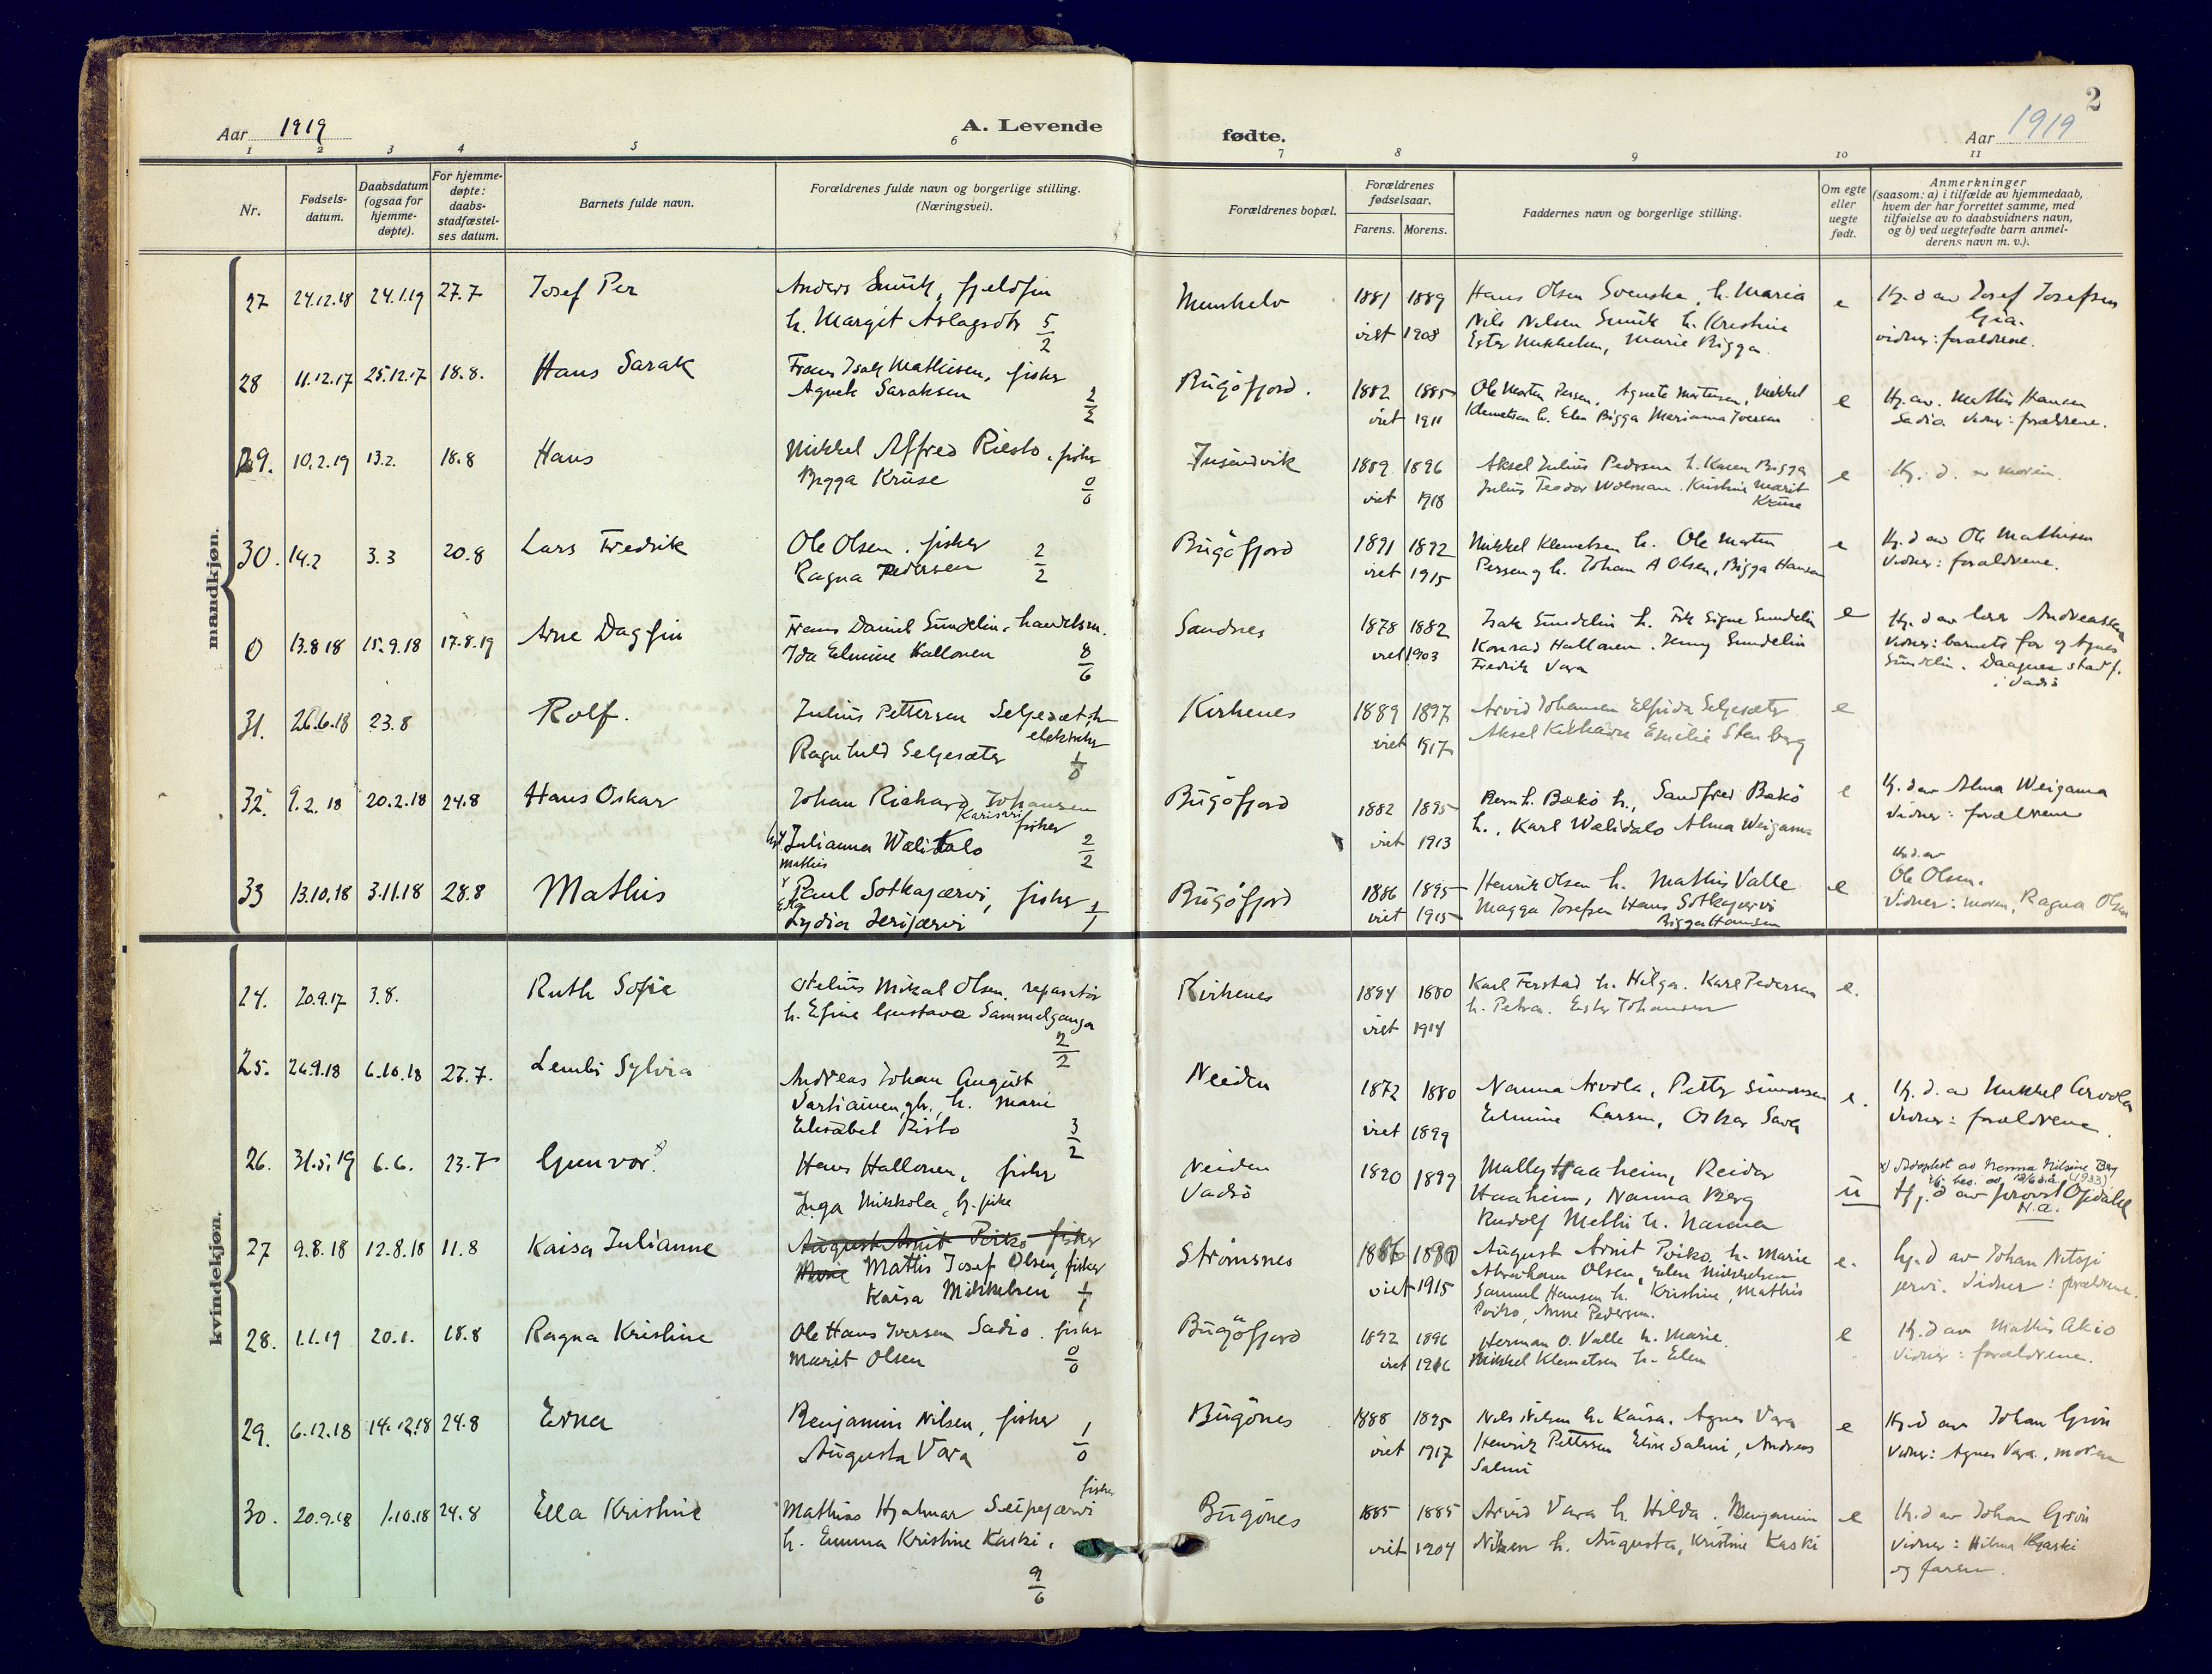 2
Aar 1919
A. Levende
fødte.
Aar 1919
1 2 3 4 5 6 7 8 9 10 11
Nr.
Fødsels-
datum.
Daabsdatum
(ogsaa for
hjemme-
døpte).
For hjemme-
døpte:
daabs-
stadfæstel-
ses datum.
Barnets fulde navn.
Forældrenes fulde navn og borgerlige stilling.
(Næringsvei).
Forældrenes bopæl.
Forældrenes
fødselsaar.
Farens. Morens.
Faddernes navn og borgerlige stilling.
Om egte
eller
uegte
født.
Anmerkninger
(saasom: a) i tilfælde av hjemmedaab,
hvem der har forrettet samme, med
tilføielse av to daabsvidners navn,
og b) ved uegtefødte barn anmel-
derens navn m. v.).
mandkjøn.
27 24.12.18 24.1.19 27.7 Josef Per Anders fjeldfin Munkelv 1881 1889 Hans Olsen Svenske, h. Maria e Hj. d av Josef Josefsen
h. Margit Aslagsdtr 5/2 viet 1908 Nils Nilsen h. Kristine
Ester Mikkelsen, Marie Bigga vidner: forældrene.
28 11.12.17 25.12.17 18.8. Hans Sarak Frans Isak Mathisen, fisker Bugöfjord. 1882 1885 Ole Morten Persen, Agnete Mortensen, Mikkel e Hj. av. Mathis Hansen
Agnete Saraksen 2/2 viet 1911 Klemetsen h. Elen Bigga Marianna Iversen Sadio. Vidner: forældrene.
29. 10.2.19 13.2. 18.8 Hans Mikkel Alfred Riesto, fisker 1889 1896 Aksel Julius Pedersen h. Karen Bigga e Hj. d. av moren.
Bigga Kruse 0/0 viet 1918 Julius Teodor Kristine Marit
Kruse
30. 14.2 3.3 20.8 Lars Fredrik Ole Olsen, fisker 2/2 Bugöfjord 1891 1892 Mikkel Klemetsen h. Ole Morten e Hj. d av Ole Mathisen
Ragna Pedersen viet 1915 Persen og h. Johan A Olsen, Bigga Hansen Vidner: forældrene.
0 13.8 18 15.9.18 17.8.19 Arne Dagfin Frans Daniel Sundelin, handelsm. Sandnes 1878 1882 Isak Sundelin h. Frk Signe Sundelin e Hj. d av
Ida Elmine Hallonen 8/6 viet 1903 Konrad Hallonen. Jenny Sundelin Vidner: barnets far og Agnes
Fredrik Vara Sundelin. Daapen stadf.
i Vadsö
31. 26.6.18 23.8 Rolf. Julius Pettersen Seljesæter Kirkenes 1889 1897 Arvid Johansen Elfrida Seljesæter e
Ragnhild Seljesæter 1/0 viet 1917 Aksel Emilie Stenberg
32. 9.2.18 20.2.18 24.8 Hans Oskar Johan Richard Johansen Bugöfjord 1882 1895 Bernh. Bækö h., Sandfred Bækö e Hj. d av Alma Weigama
Karisari fisker
Julianna Walitalo 2/2 viet 1913 h., Karl Walitalo Alma Weigama Vidner: forældrene
Mathis Hj. d. av
33 13.10.18 3.11.18 28.8 Mathis Paul Sotkajærvi, fisker 1/1 Bugöfjord 1886 1895 Henrik Olsen h. Mathis Valle e Ole Olsen.
Lydia viet 1915 Magga Josefsen Hans Sotkajærvi Vidner: moren, Ragna Olsen
Bigga Hansen
kvindekjøn.
24. 20.9.17 3.8. Ruth Sofie Mikal Olsen, reparatör Kirkenes 1894 1880 Karl Ferstad h. Helga. Karl Pedersen e.
h. Efine Gustava 2/2 viet 1914 h. Petra. Ester Johansen
25. 26.9.18 6.10.18 27.7. Lembi Sylvia Andreas Johan August Neiden 1872 1880 Nanna Arvola, Petter Simonsen e. Hj. d. av Mikkel Arvola
Vartiainen, gbr., h. Marie viet 1899 Elmine Larsen, Oskar Sava Vidner: forældrene.
Elisabet Risto 3/2
26. 31.5.19 6.6. 23.7 Gunvor x) Hans Hallonen, fisker Neiden 1890 1899 Mally Haaheim, Reidar u x) Adoptert av Nanna Nilsine Berg
Inga Mikkola, tj.pike Vadsö Haaheim, Nanna Berg Hj. d av provst Opdahl
Rudolf Mathis h. Nanna N.a.
27 9.8.18 12.8.18 11.8 Kaisa Julianne August Arnt Poiko fisker Strömsnes 1886 1880 August Arnt Poiko, h. Marie e. hj. d av Johan
Marie Mathis Josef Olsen, fisker viet 1915 Abraham Olsen, Elen Mikkelsen jervi. Vidner: forældrene.
Kaisa Mikkelsen 1/1 Samuel Hansen h. Kristine, Mathis
Poiko, Anne Pedersen.
28. 1.1.19 20.1. 18.8 Ragna Kristine Ole Hans Iversen Sadio. fisker Bugöfjord 1892 1896 Herman O. Valle h. Marie. e Hj. d av Mathis Akio
Marit Olsen 0/0 viet 1916 Mikkel Klemetsen h. Elen Vidner: forældrene.
29. 6.12.18 14.12.18 24.8 Erna Benjamin Nilsen, fisker 1/0 Bugönes 1888 1895 Nils Nilsen h. Kaisa. Agnes Vara e Hj. d av Johan Grön
Augusta Vara viet 1917 Henrik Pettersen Elise Salmi, Andreas Vidner: Agnes Vara, moren
Salmi
30. 20.9.18 1.10.18 24.8 Ella Kristine Mathias Hjalmar Seipejærvi fisker Bugönes 1885 1885 Arvid Vara h. Hilda. Benjamin e Hj. d av Johan Grön
h. Emma Kristine Kaski. 9/6 viet 1904 Nilsen h. Augusta, Kristine Kaski Vidner: Hilma Kaski
og faren.